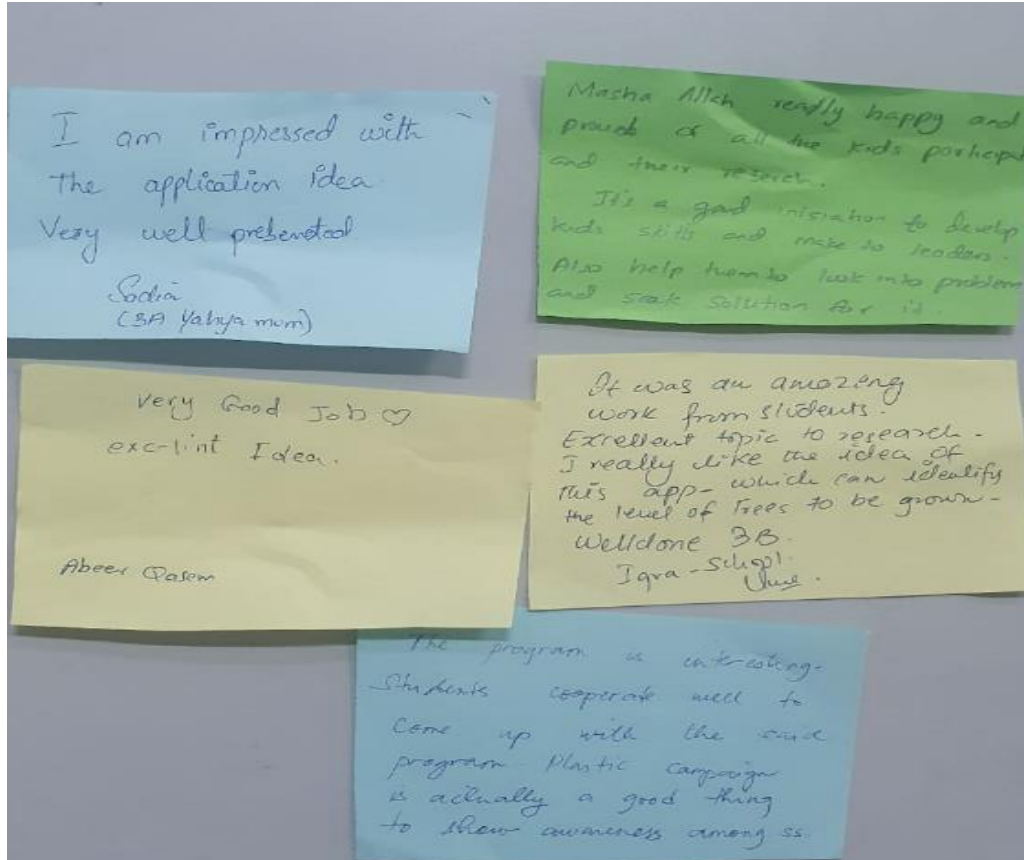 I am impressed with
the application idea
Very well presenetod
Sadia
(3A Yahya mom)
Masha Allah really happy and
proud of all the kids particip
and their reserch.
It's a good to develop
kids skills and make to leaders.
Also help them to look into problem
and seak solution for it.
very Good Job ♡
exc-lint Idea.
Abeer Qasem
It was an amazing
work from students.
Excellent topic to research-
I really like the idea of
this app- which can identify
the level of Trees to be grown-
Welldone 3B.
Iqra-School.
The program is interesting-
Students cooperate well to
come up with the said
program. Plastic campaign
is actually a good thing
to show awareness among ss.